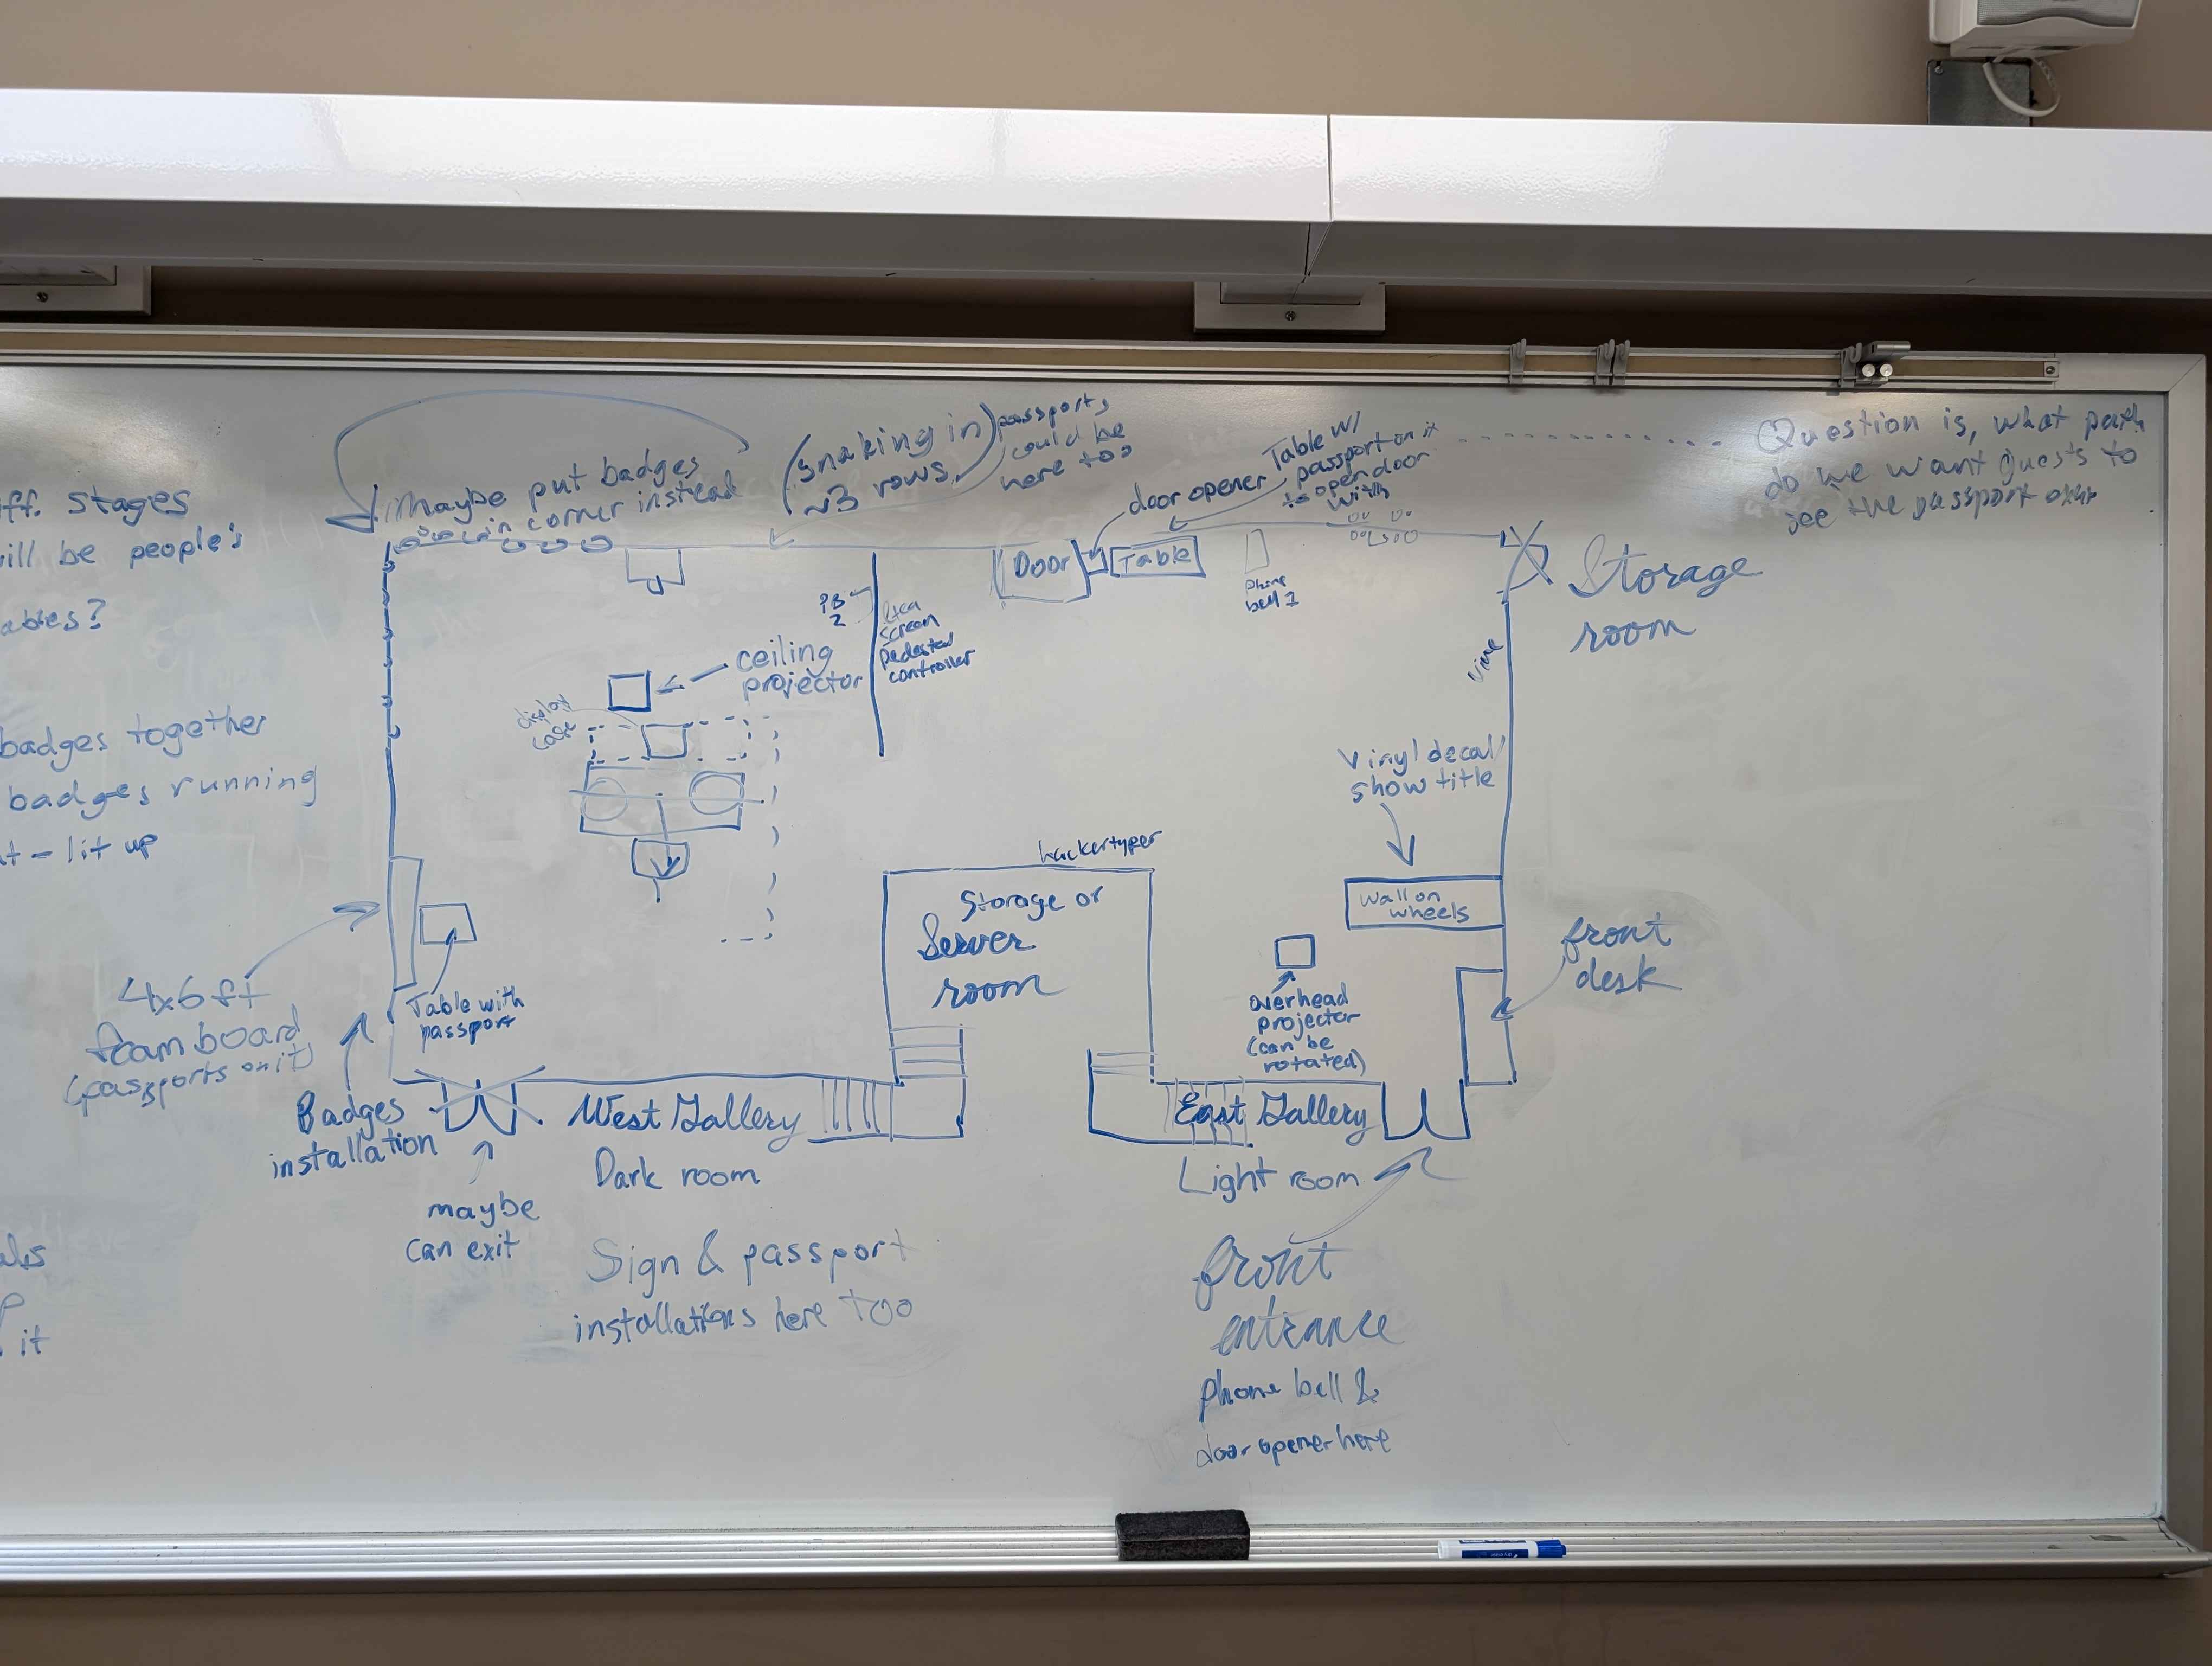 ff. stages
ill be people's
ables?
badges together
badges running
t - lit up
it
Maybe put badges
in corner instead
(snaking in)
~3 rows.
passports
could be
here too
door opener
Table w/
passport on it
to open door
with
Question is, what path
do we want guests to
see the passport
Door
Table
phone
bell 1
Storage
room
PB
2
screen
pedestal
controller
ceiling
projector
display
case
vine
Vinyl decal
show title
wall on
wheels
hackertyper
Storage or
Server
room
front
desk
overhead
projector
(can be
rotated)
4x6 ft
foam board
(passports on it)
Table with
passport
Badges
installation
maybe
can exit
West Gallery
Dark room
Sign & passport
installations here too
East Gallery
Light room
front
entrance
phone bell &
door opener here